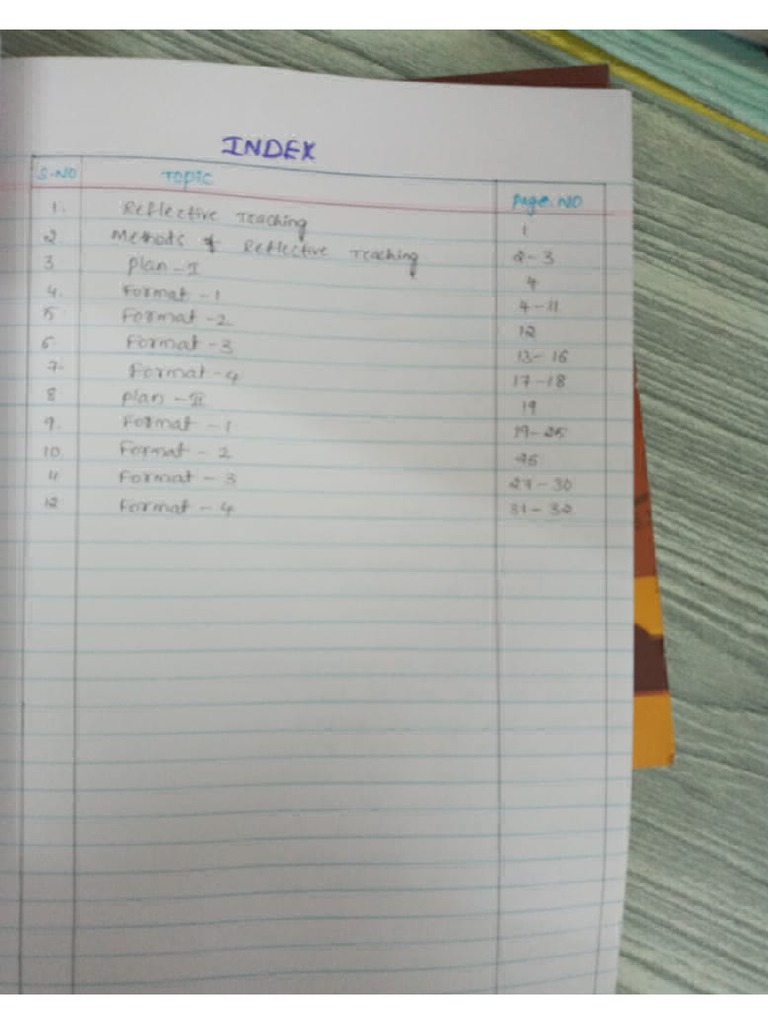 INDEX
S.NO Topic Page.NO
1. Reflective Teaching 1
2 Methods of Reflective Teaching 2-3
3 Plan-I 4
4. Format-1 4-11
5 Format-2 12
6 Format-3 13-16
7. Format-4 17-18
8 Plan-II 19
9. Format-1 19-25
10 Format-2 26
11 Format-3 27-30
12 Format-4 31-32